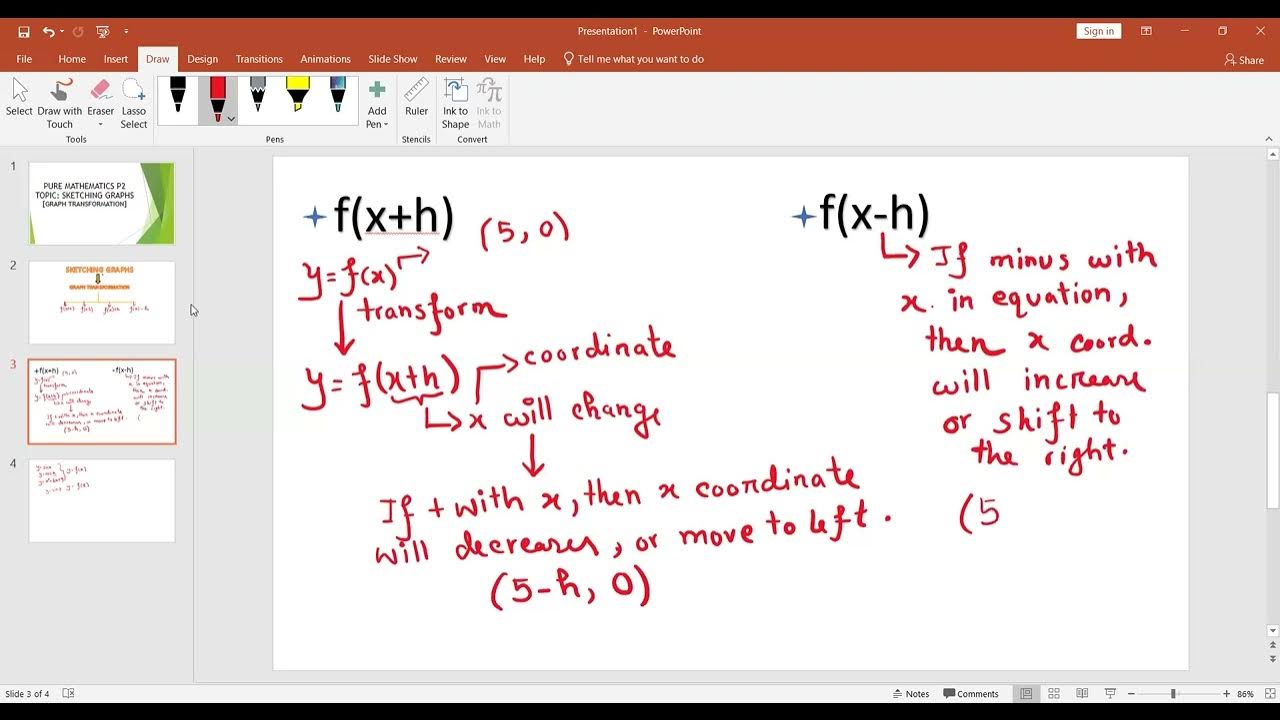 Presentation1 - PowerPoint
Sign in
File Home Insert Draw Design Transitions Animations Slide Show Review View Help Tell me what you want to do
Share
Select Draw with Touch Eraser Lasso Select
Tools
Pens
Add Pen
Ruler
Stencils
Ink to Shape Ink to Math
Convert
1
PURE MATHEMATICS P2
TOPIC: SKETCHING GRAPHS
[GRAPH TRANSFORMATION]
2
SKETCHING GRAPHS
GRAPH TRANSFORMATION
3
4
f(x+h) (5, 0)
y=f(x)
transform
y=f(x+h) coordinate
x will change
If + with x, then x coordinate
will decreases, or move to left.
(5-h, 0)
f(x-h)
If minus with
x in equation,
then x coord.
will increase
or shift to
the right.
(5
Slide 3 of 4
Notes
Comments
86%